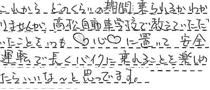 これから、どのくらいの期間 乗られるかわか
りませんが、高松自動車学校で教えていただ
いたこといつも♡心♡に置いて 安全
運転で長くバイクに乗れることを楽しめ
たらいいな〜と思ってます。